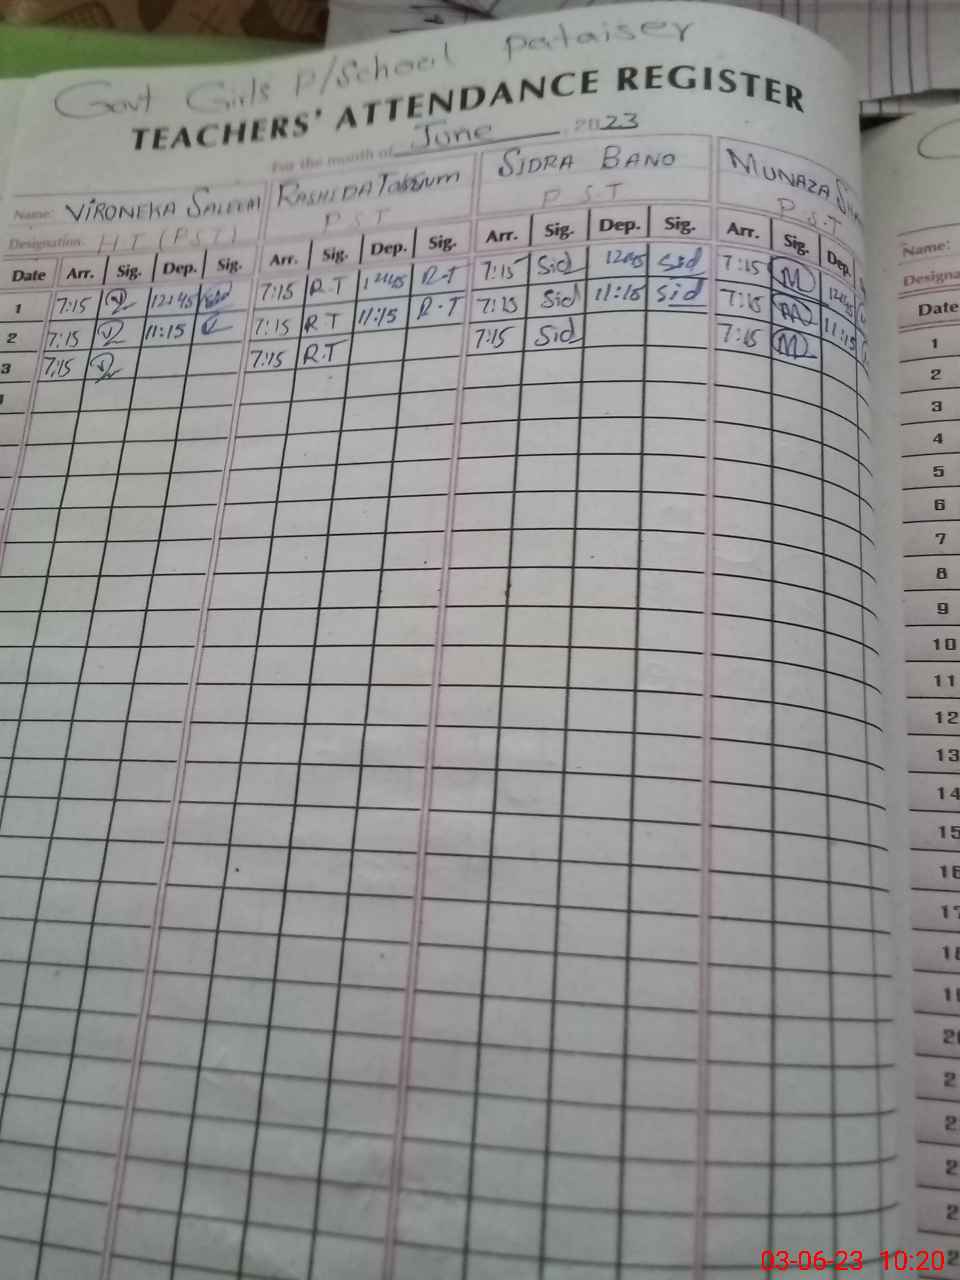 Govt Girls P/School pataiser
TEACHERS' ATTENDANCE REGISTER
For the month of June 2023
Name: VIRONEKA SALEEM RASHIDA SIDRA BANO MUNAZA
Designation. HT (PST) P S T P S T P.S.T
Date Arr. Sig. Dep. Sig. Arr. Sig. Dep. Sig. Arr. Sig. Dep. Sig. Arr. Sig. Dep.
1 7:15 12:45 7:15 R.T 12:45 R.T 7:15 Sid 12:45 Sid 7:15 M 12:45
2 7:15 11:15 7:15 R.T 11:15 R.T 7:15 Sid 11:15 Sid 7:15 M 11:15
3 7:15 7:15 R.T 7:15 Sid 7:15 M
Name:
Date
1
2
3
4
5
6
7
8
9
10
11
12
13
14
15
03-06-23 10:20